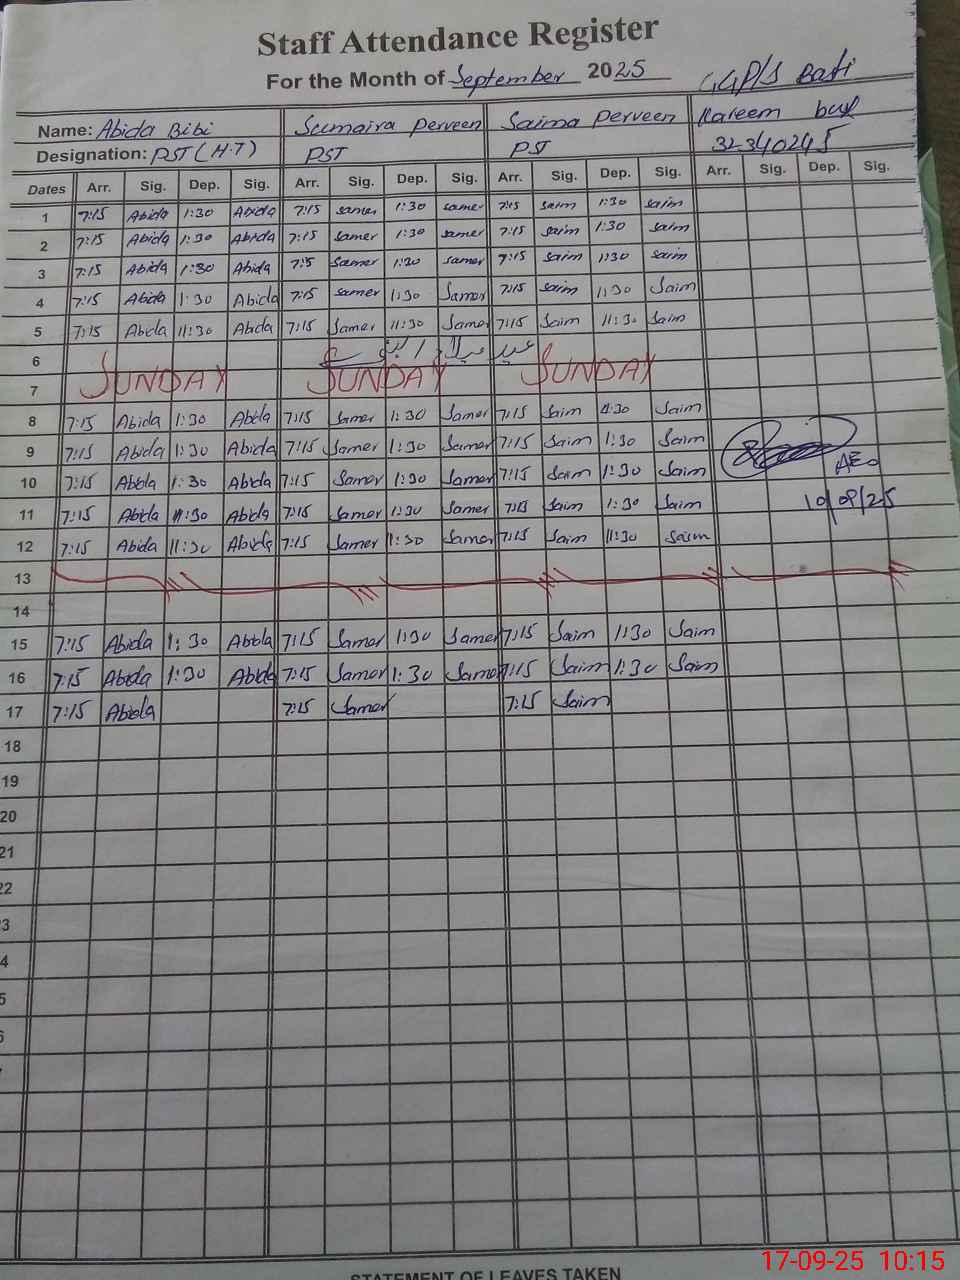 Staff Attendance Register
For the Month of September 2025 GGP/S Basti
Name: Abida Bibi Sumaira Perveen Saima Perveen Kareem bux
Designation: PST (H.T) PST PST 32340245
Dates Arr. Sig. Dep. Sig. Arr. Sig. Dep. Sig. Arr. Sig. Dep. Sig. Arr. Sig. Dep. Sig.
1 7:15 Abida 1:30 Abida 7:15 samer 1:30 samer 7:15 saim 1:30 saim
2 7:15 Abida 1:30 Abida 7:15 samer 1:30 samer 7:15 saim 1:30 saim
3 7:15 Abida 1:30 Abida 7:15 samer 1:30 samer 7:15 saim 1:30 saim
4 7:15 Abida 1:30 Abida 7:15 samer 1:30 Samer 7:15 saim 1:30 Saim
5 7:15 Abida 11:30 Abida 7:15 Samer 11:30 Samer 7:15 Saim 11:30 Saim
6 عید میلاد النبی
7 SUNDAY SUNDAY SUNDAY
8 7:15 Abida 1:30 Abida 7:15 Samer 1:30 Samer 7:15 Saim 1:30 Saim
9 7:15 Abida 1:30 Abida 7:15 Samer 1:30 Samer 7:15 Saim 1:30 Saim
10 7:15 Abida 1:30 Abida 7:15 Samer 1:30 Samer 7:15 Saim 1:30 Saim AEO
11 7:15 Abida 1:30 Abida 7:15 Samer 1:30 Samer 7:15 Saim 1:30 Saim 10/09/25
12 7:15 Abida 11:30 Abida 7:15 Samer 11:30 Samer 7:15 Saim 11:30 Saim
13
14
15 7:15 Abida 1:30 Abida 7:15 Samer 1:30 Samer 7:15 Saim 1:30 Saim
16 7:15 Abida 1:30 Abida 7:15 Samer 1:30 Samer 7:15 Saim 1:30 Saim
17 7:15 Abida 7:15 Samer 7:15 Saim
18
19
20
21
22
3
4
5
STATEMENT OF LEAVES TAKEN
17-09-25 10:15